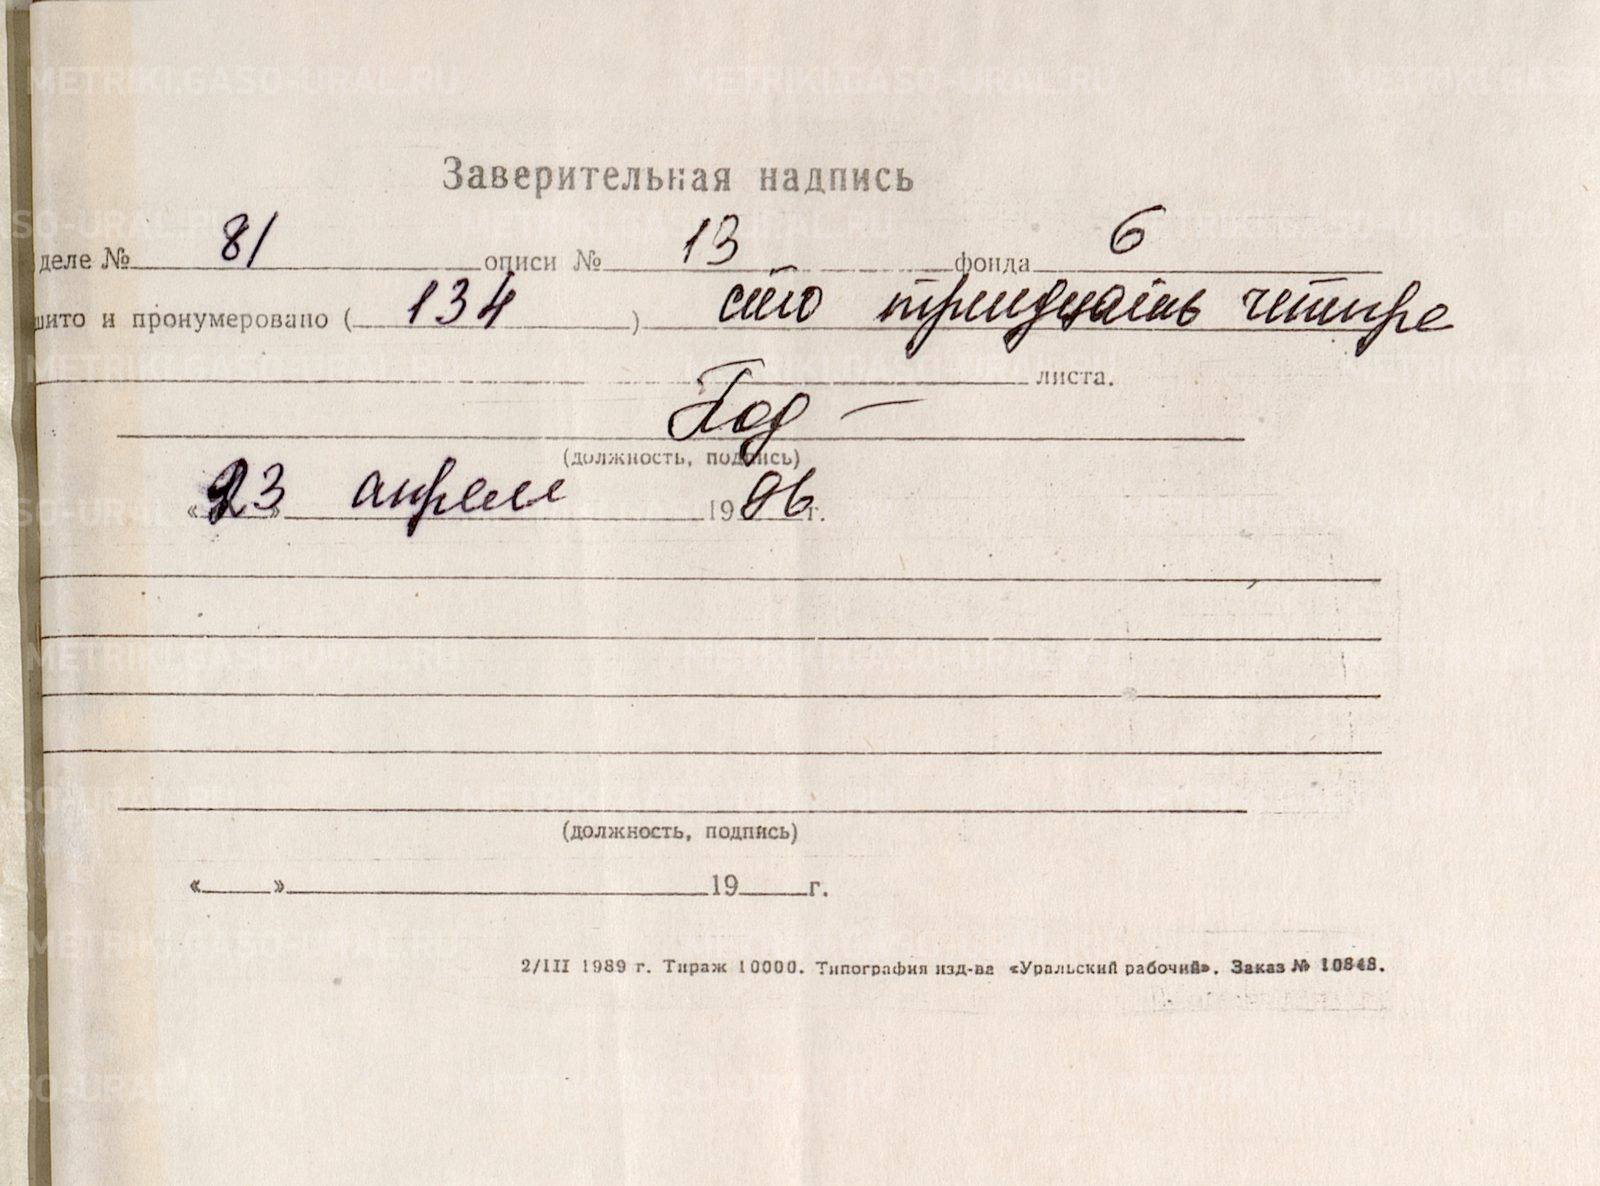 Заверительная надпись
деле № 81 описи № 13 фонда 6
шито и пронумеровано ( 134 ) сто тридцать четыре
листа.
(должность, подпись)
«23» апреля 1996 г.
(должность, подпись)
«   »   19   г.
2/III 1989 г. Тираж 10000. Типография изд-ва «Уральский рабочий». Заказ № 10848.
METRIKI.GASO-URAL.RU